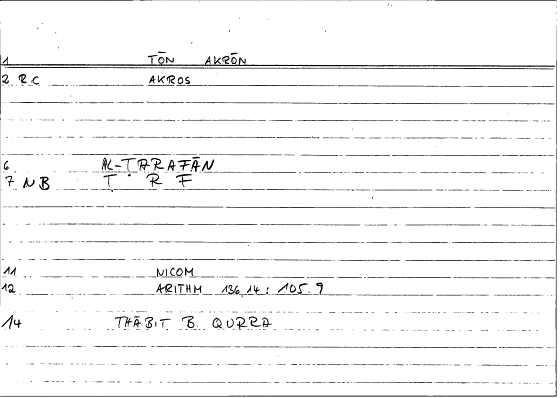 1 TŌN AKRŌN
2 RC AKROS
6 AL-ṬARAFĀN
7 NB Ṭ R F
11 NICOM
12 ARITHM 136,14: 105.9
14 THĀBIT B. QURRA